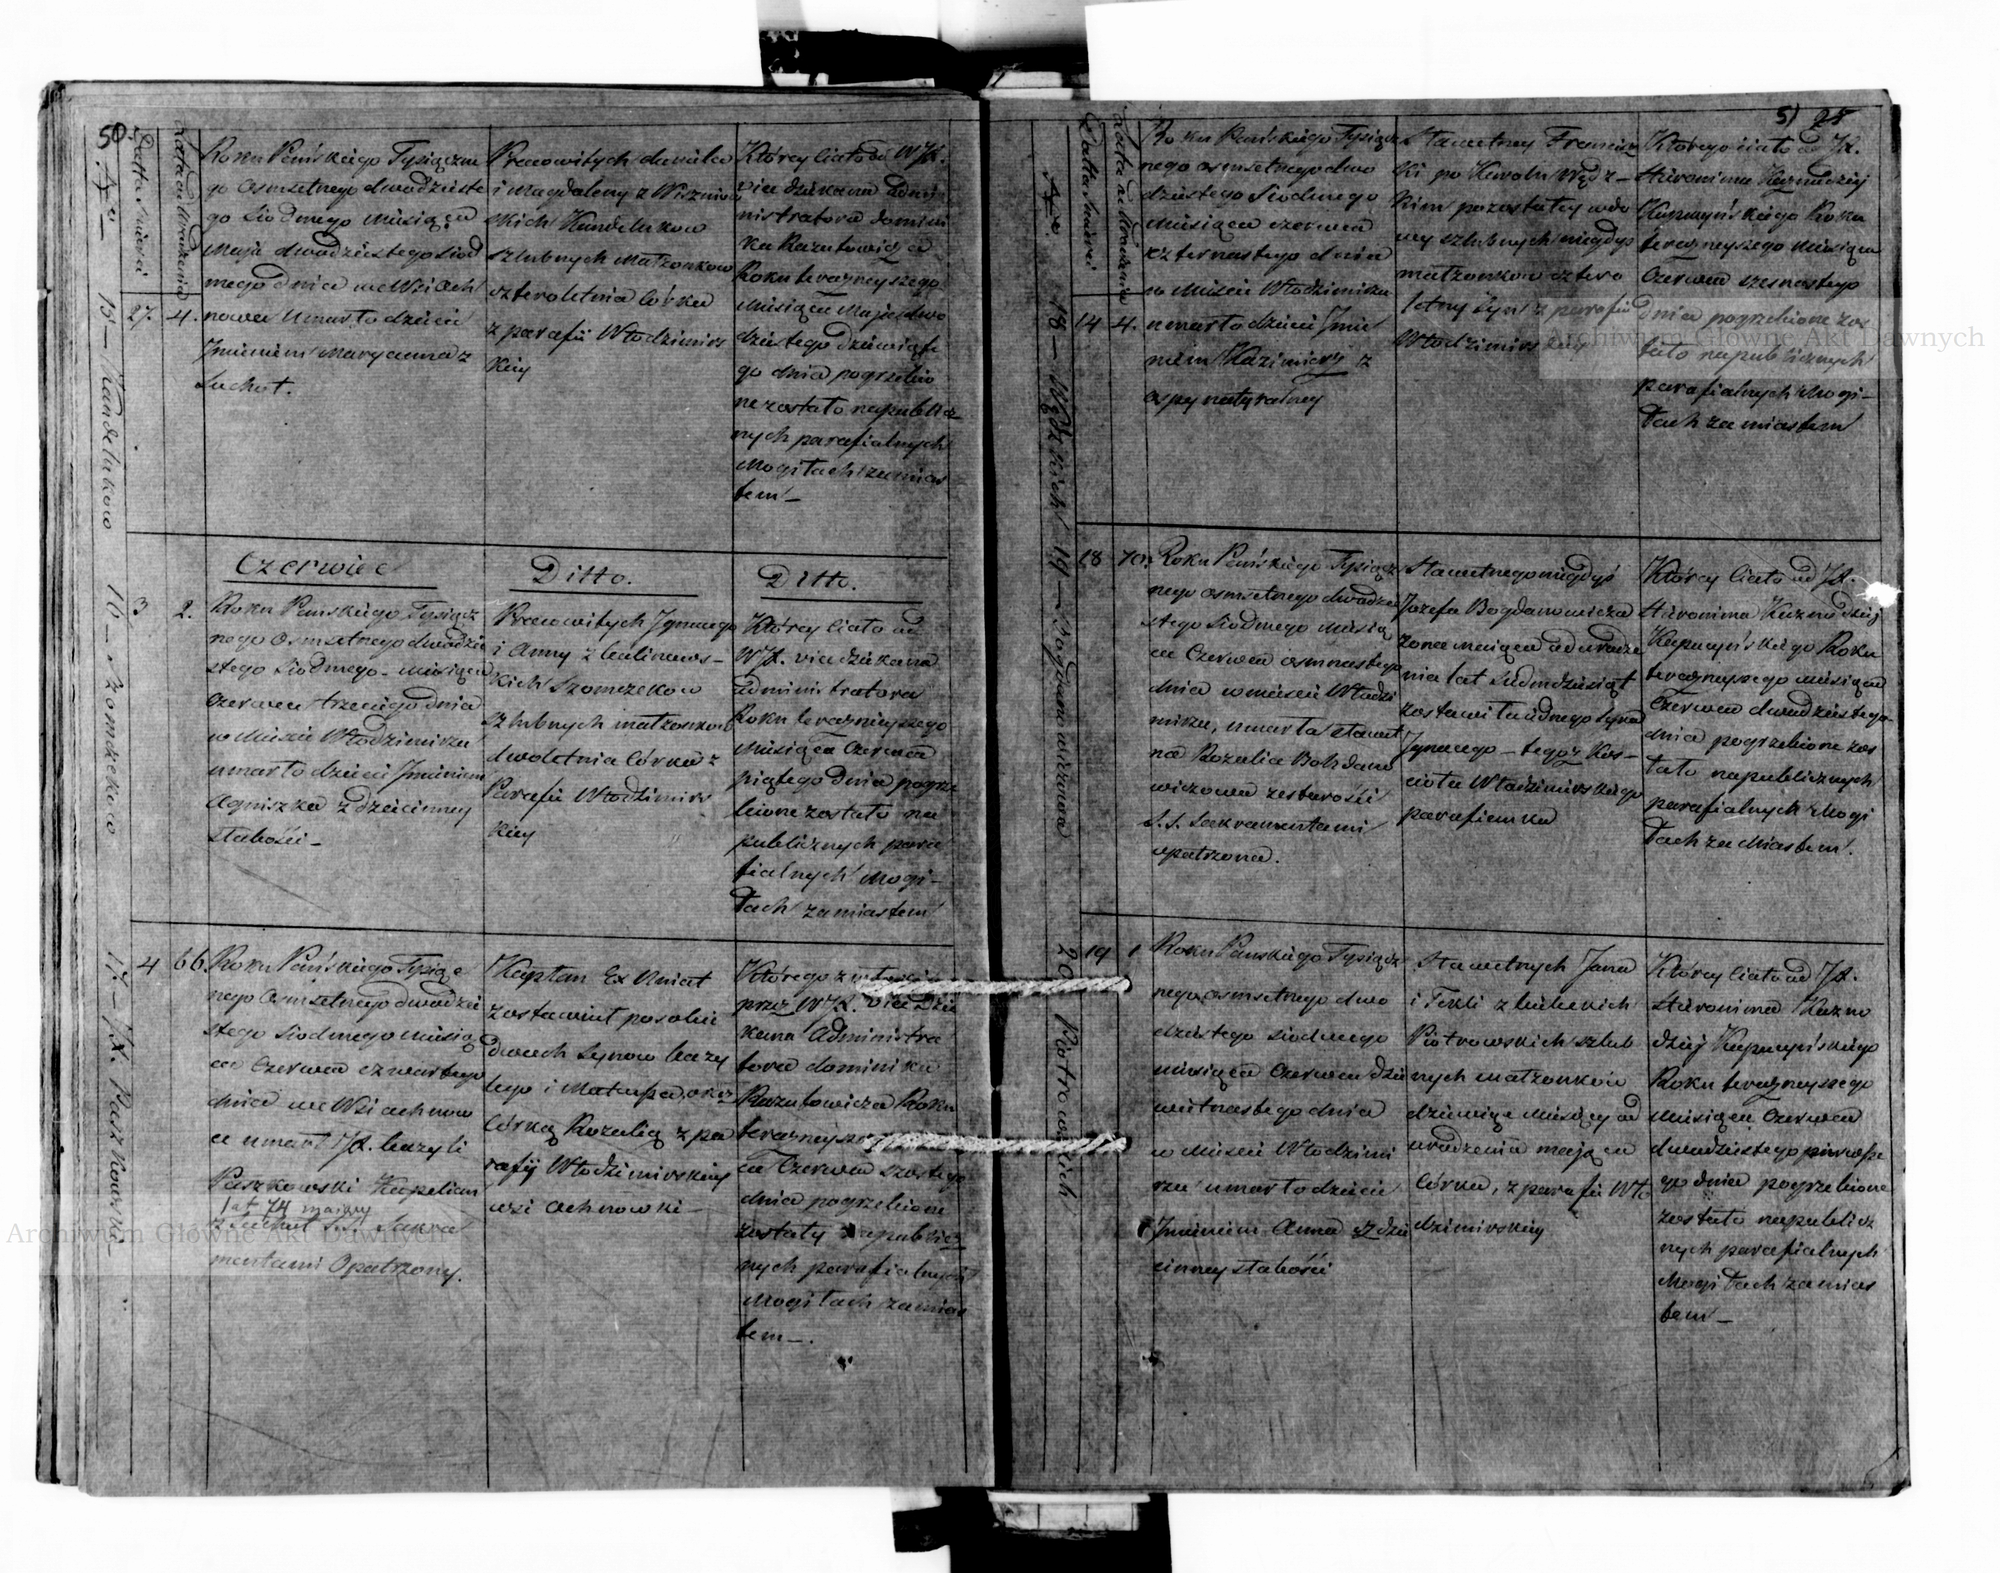 50.
Nro
Datta Śmierci
Latta od Urodzenia
15 — Kandelukow
27.
4.
Roku Pańskiego Tysiączne
go Osmsetnego dwudzieste
go Siodmego Miesiąca
Maja dwudziestego Siod
mego dnia we Wsi Ach
nowce Umarło dziecie
Jmieniem Maryanna z
Suchot.
Pracowitych Daniła
i Magdaleny z Wiszniow
skich Kandelukow
szlubnych Małzonkow
czteroletnia Córka
z parafii Włodzimirs
kiey
Którey Ciało od WJX.
vice dziekana Admi
nistratora Domini
ka Razutowicza
Roku terazneyszego
Miesiąca Maja dwu
dziestego dziewiąte
go dnia pogrzebio
ne zostało na publicz
nych parafialnych
Mogiłach za mias
tem —
Czerwiec
Ditto.
Ditto.
16 — Szomzekow
3
2.
Roku Pańskiego Tysiącz
nego Osmsetnego dwudzie
stego Siodmego — miesiąca
Czerwca trzeciego dnia
w Mieście Włodzimirzu
umarło dziecie Jmieniem
Agniszka z dziecinney
słabości —
Pracowitych Jgnacego
i Anny z
kich Szomzekow
szlubnych małzonkow
dwoletnia Córka z
Parafii Włodzimirs
kiey
Którey Ciało od
WJX. vice dziekana
administratora
Roku terazneyszego
Miesiąca Czerwca
piątego Dnia pogrze
bione zostało na
publicznych para
fialnych Mogi —
łach za miastem
17. — JX. Paszkowski
4
66.
Roku Pańskiego Tysiącz
nego Osmsetnego dwudzie
stego Siodmego Miesią
ca Czerwca czwartego
dnia we Wsi Achnow
ce umarł JX. Bazyli
Paszkowski Kapelian
lat 74 maiący
z Suchot S.S. Sakra
mentami Opatrzony.
Kapłan Ex Uniat
zostawiwszy po sobie
dwuch Synow Bazy
lego i Mateusza, oraz
Córkę Rozalią z pa
rafij Włodzimirskiey
wsi Achnowki —
Którego zwłoki
przez WJX. Vice Dzie
kana Administra
tora Dominika
Razutowicza Roku
terazneyszego
ca Czerwca szostego
dnia pogrzebione
zostały na publicz
nych parafialnych
Mogiłach za mias
tem —.
51 28
Nro
Datta Śmierci
Latta od Urodzenia
18 — Wędzkich
14
4.
Roku Pańskiego Tysiącz
nego osmsetnego dwu
dziestego Siodmego
Miesiąca czerwca
czternastego dnia
w Mieście Włodzimirzu
umarło dziecie Jmie
niem Kazimierz z
ospy naturalney
Sławetney Francisz
ki po Karolu Wędz —
kim pozostałey wdo
wy szlubnych niegdys
małzonkow cztero
letny Syn z parafii
Włodzimirskiey
Którego ciało od JX.
Hieronima Kaznodziej
Kapucyńskiego Roku
terazneyszego Miesiąca
Czerwca szesnastego
dnia pogrzebione zos
tało na publicznych
parafialnych Mogi —
łach za miastem
19 — Bogdanowiczowa
18
70.
Roku Pańskiego Tysiącz
nego osmsetnego dwudzie
stego Siodmego Miesią
ca Czerwca osmnastego
dnia w mieście Włodzi
mirzu, umarła sławet
na Rozalia Bohdano
wiczowa ze starości
S.S. Sakramentami
opatrzona.
Sławetnego niegdyś
Jozefa Bogdanowicza
żona maiąca od urodze
nia lat siedmdziesiąt
zostawiła iednego Syna
Jgnacego — tegoż Kos —
cioła Włodzimirskiego
parafianka
Którey Ciało od JX.
Hieronima Kaznodziej
Kapucyńskiego Roku
terazneyszego miesiąca
Czerwca dwudziestego
dnia pogrzebione zos
tało na publicznych
parafialnych Mogi
łach za Miastem.
20 Piotrowskich
19
1
Roku Pańskiego Tysiącz
nego osmsetnego dwu
dziestego siodmego
miesiąca Czerwca dzie
wietnastego dnia
w Mieście Włodzimi
rzu umarło dziecie
Jmieniem Anna z dzie
cinney słabości
Sławetnych Jana
i Tekli z
Piotrowskich szlub
nych małzonkow
dziewięć miesięcy od
urodzenia mająca
Córka, z parafii Wło
dzimirskiey
Którey Ciało od JX.
Hieronima Kazno
dziej Kapucyńskiego
Roku terazneyszego
miesiąca Czerwca
dwudziestego pierwsze
go dnia pogrzebione
zostało na publicz
nych parafialnych
Mogiłach za mias
tem —
Archiwum Główne Akt Dawnych
Archiwum Główne Akt Dawnych